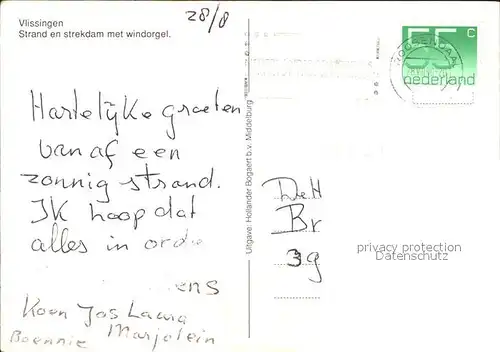 Vlissingen
Strand en strekdam met windorgel.
28/8
Hartelijke groeten
vanaf een
zonnig strand.
Ik hoop dat
alles in orde
ens
Koen Jos Laura
Boennie Marjolein
Uitgave: Hollander Bogaert b.v. Middelburg
55 c
nederland
ROOSENDAAL
De H
Br
39
privacy protection
Datenschutz